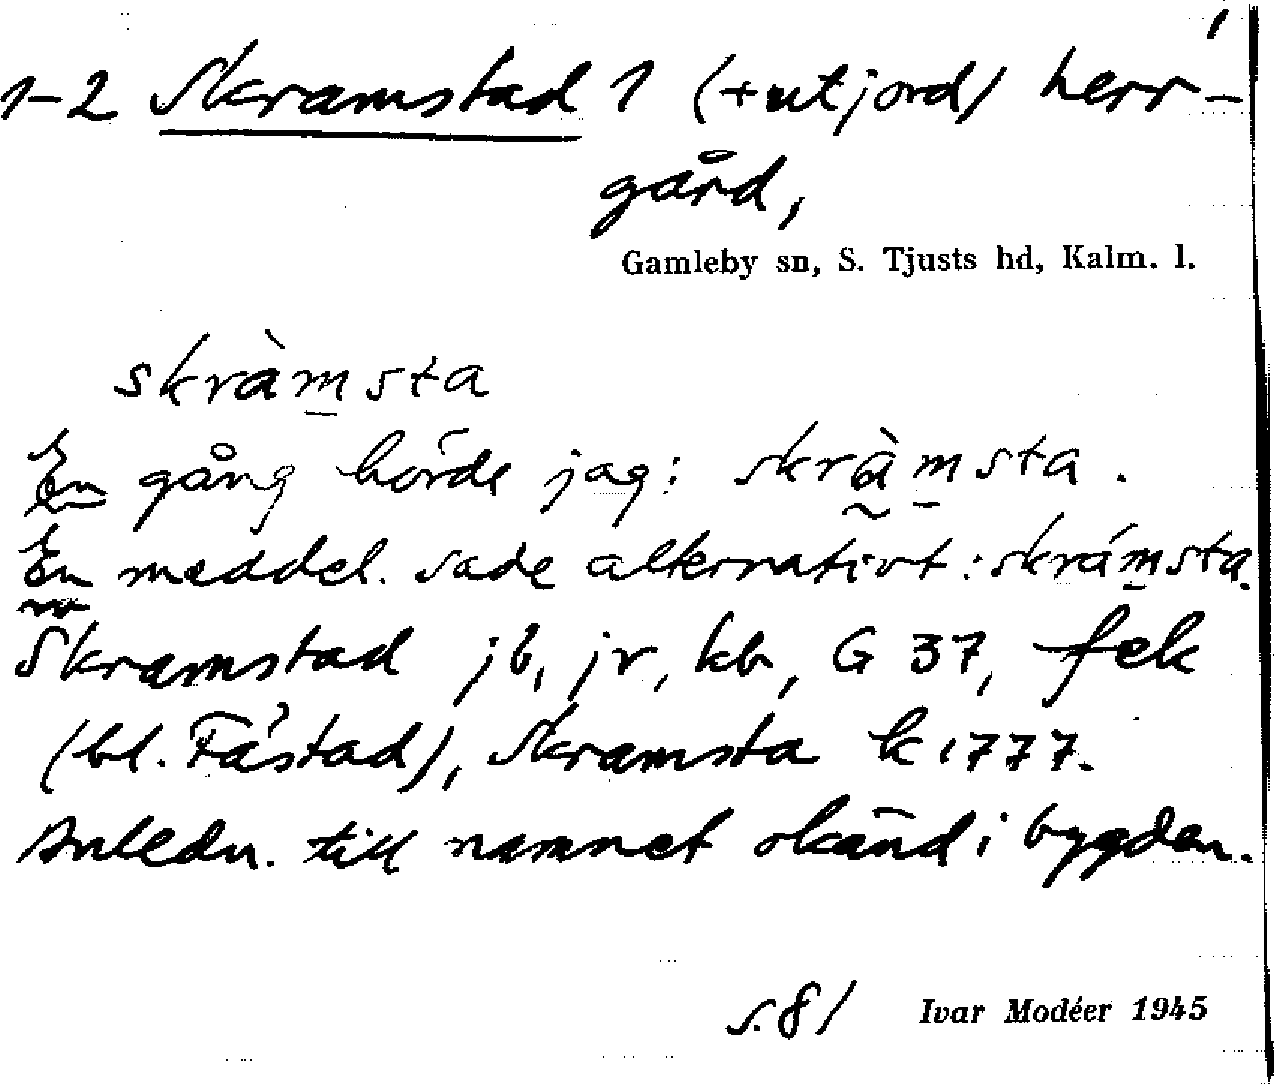 1-2 Skramstad 1 (+utjord) herr-
gård,
Gamleby sn, S. Tjusts hd, Kalm. l.
skràmsta
En gång hörde jag: skràmsta.
En meddel. sade alternativt: skrámsta.
Skramstad jb, jr, kb, G 37, fek
(bl. Fåstad), Skramsta k 1777.
Anledn. till namnet okänd i bygden.
s. 81 Ivar Modéer 1945